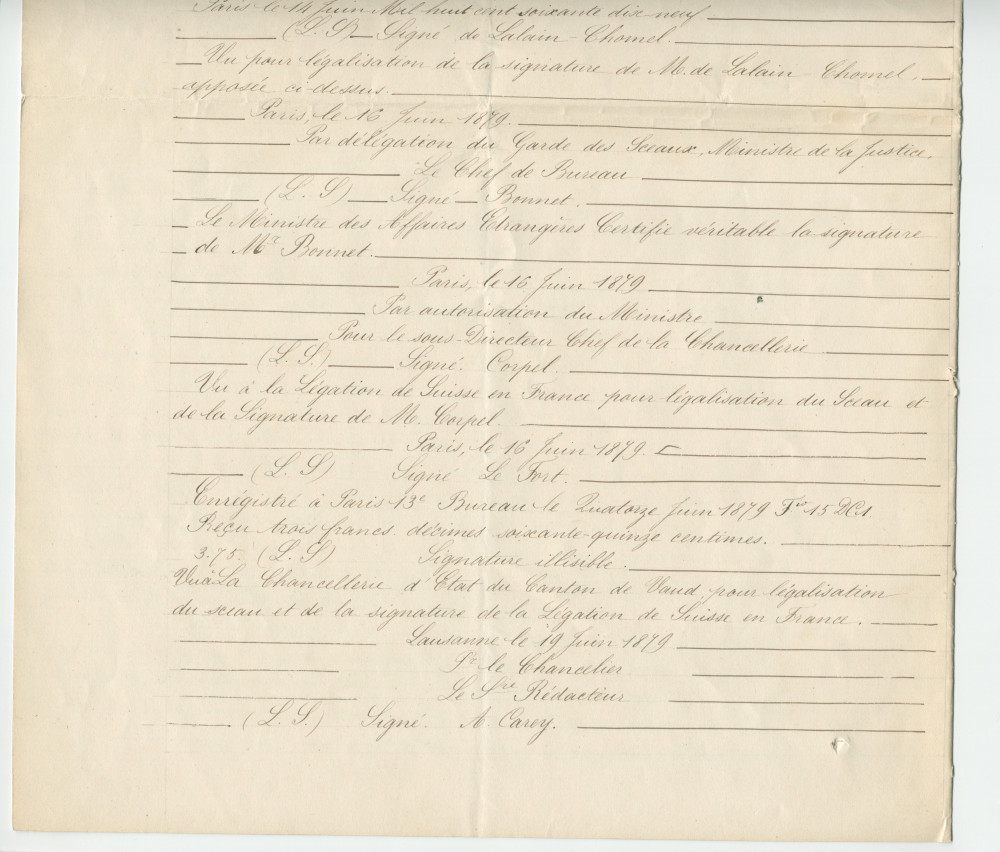 Paris le 14 Juin Mil huit cent soixante dix-neuf
(L. S) Signé de Lalain-Chomel.
Vu pour légalisation de la signature de M. de Lalain-Chomel.
apposée ci-dessus.
Paris, le 16 Juin 1879.
Par délégation du Garde des Sceaux, Ministre de la Justice.
Le Chef de Bureau
(L. S) Signé Bonnet.
Le Ministre des Affaires Etrangères Certifie véritable la signature
de Mr Bonnet.
Paris, le 16 Juin 1879
Par autorisation du Ministre
Pour le sous-Directeur Chef de la Chancellerie
(L. S.) Signé. Corpel.
Vu à la Légation de Suisse en France pour légalisation du Sceau et
de la Signature de M. Corpel.
Paris, le 16 Juin 1879.
(L. S) Signé Le Fort.
Enrégistré à Paris 13e Bureau le Quatorze Juin 1879 Fo 15
Reçu trois francs. décimes soixante-quinze centimes.
3.75. (L. S) Signature illisible.
Vu à La Chancellerie d'Etat du Canton de Vaud pour légalisation
du sceau et de la signature de la Légation de Suisse en France.
Lausanne le 19 Juin 1879
Pr le Chancelier
Le Sre Rédacteur
(L. S.) Signé. A. Carey.